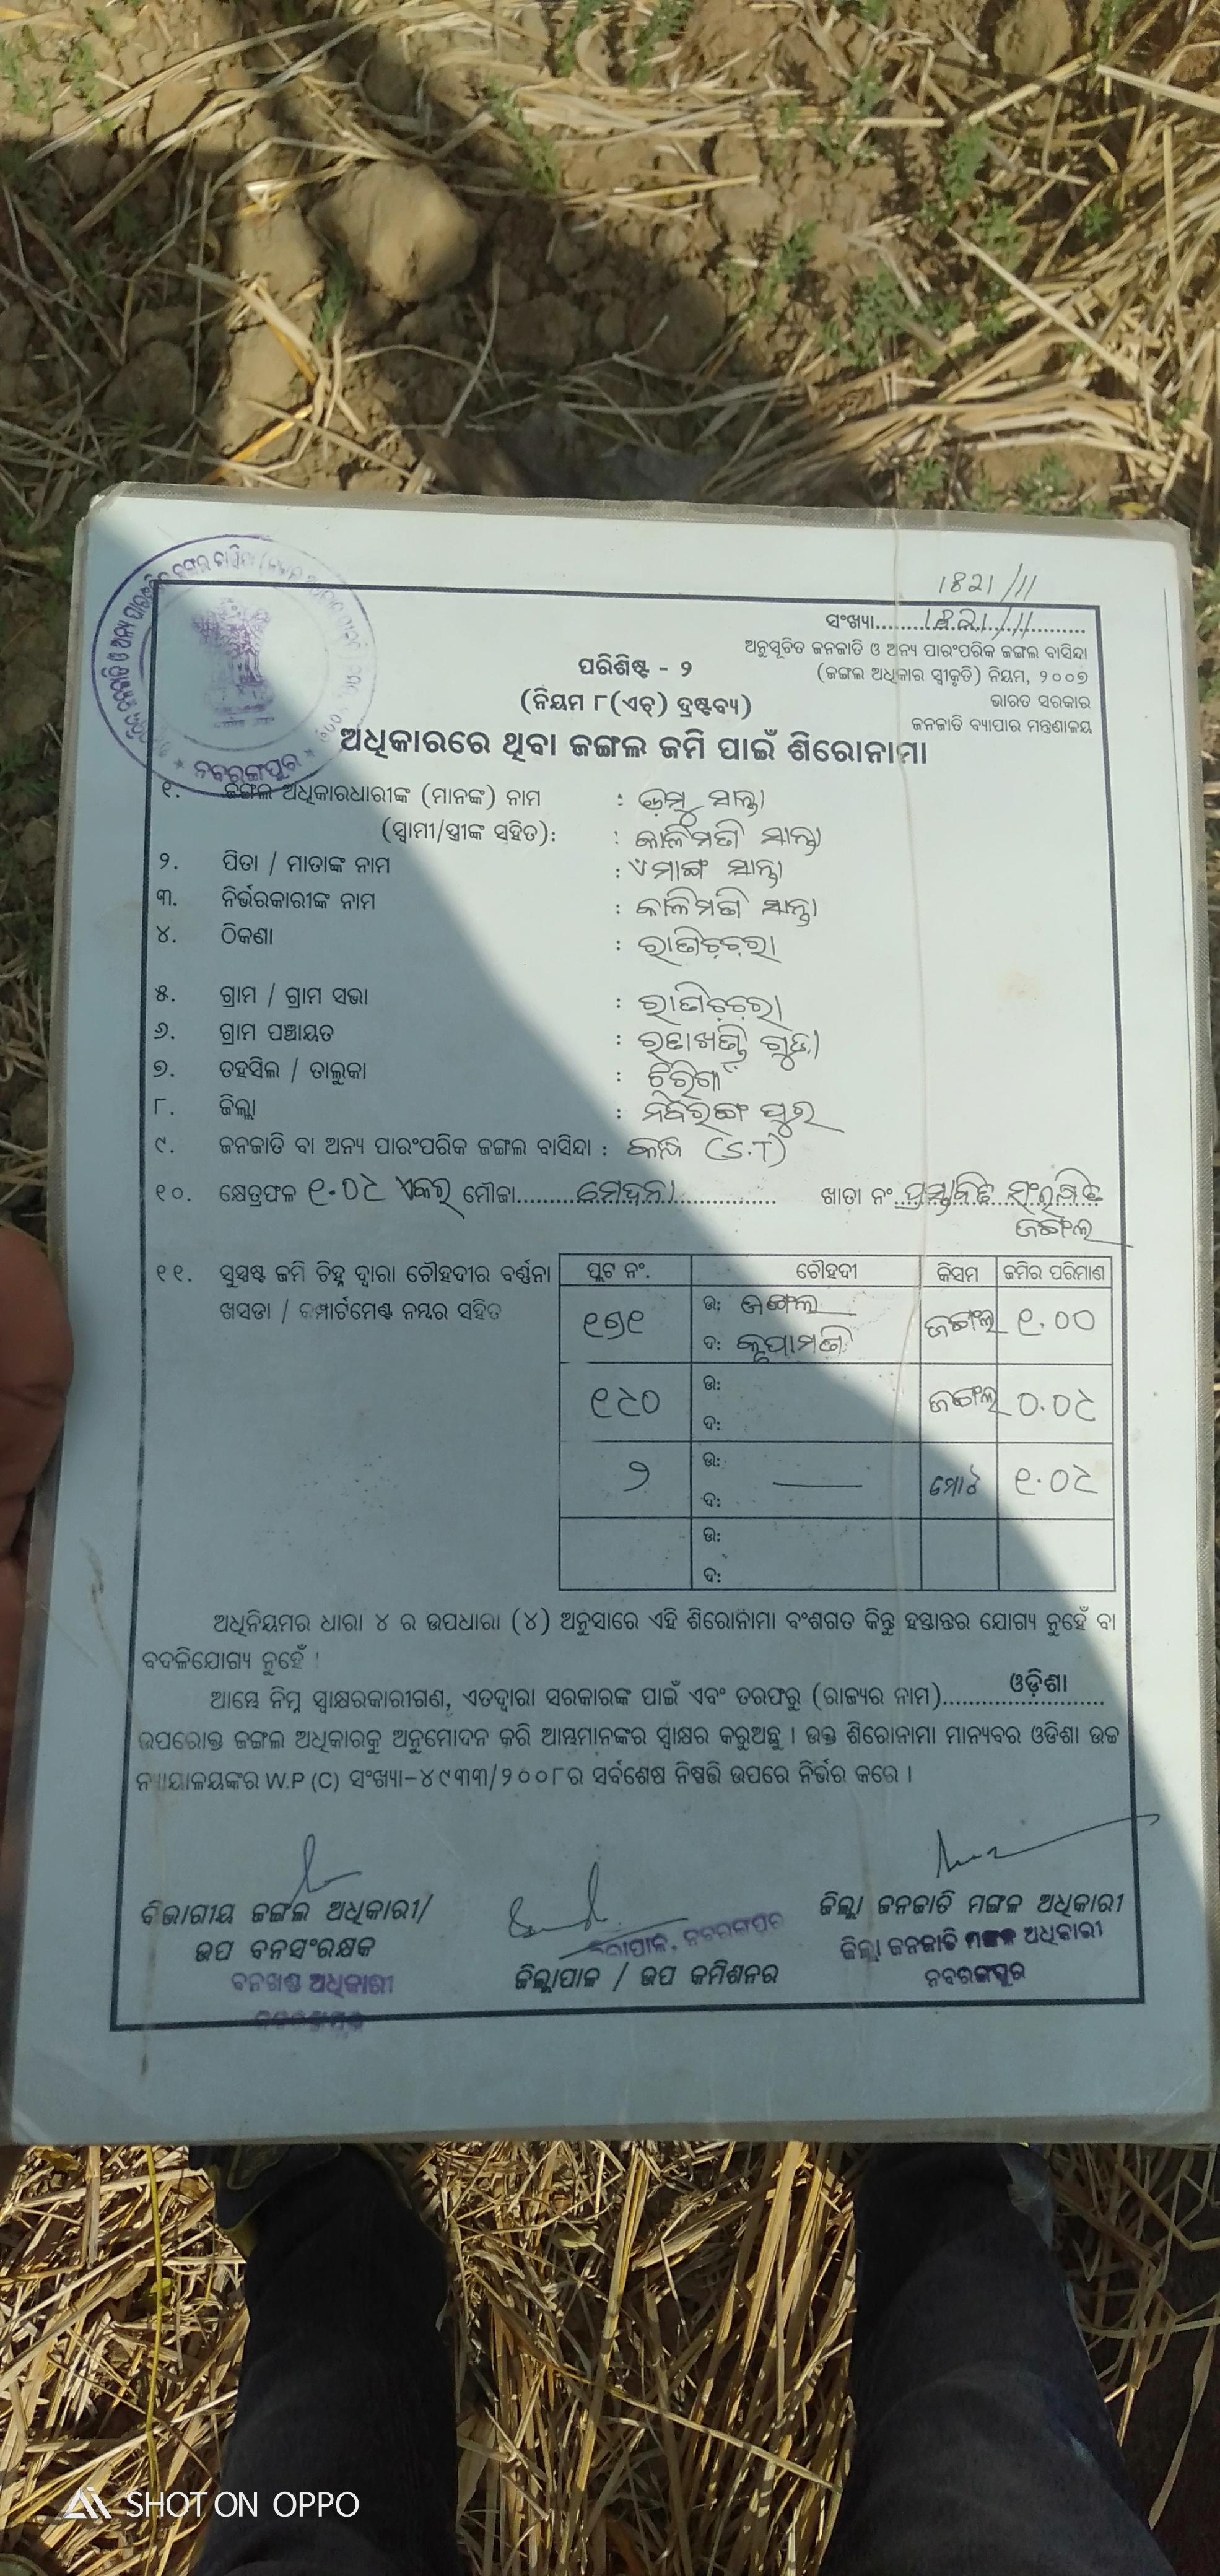 1821/11
ସଂଖ୍ୟା..........1821/11..........
ଅନୁସୂଚିତ ଜନଜାତି ଓ ଅନ୍ୟ ପାରଂପରିକ ଜଙ୍ଗଲ ବାସିନ୍ଦା
(ଜଙ୍ଗଲ ଅଧିକାର ସ୍ୱୀକୃତି) ନିୟମ, ୨୦୦୭
ଭାରତ ସରକାର
ଜନଜାତି ବ୍ୟାପାର ମନ୍ତ୍ରଣାଳୟ
ପରିଶିଷ୍ଟ - ୨
(ନିୟମ ୮(ଏଚ୍) ଦ୍ରଷ୍ଟବ୍ୟ)
ଅଧିକାରରେ ଥିବା ଜଙ୍ଗଲ ଜମି ପାଇଁ ଶିରୋନାମା
ନବରଙ୍ଗପୁର
୧. ଜଙ୍ଗଲ ଅଧିକାରଧାରୀଙ୍କ (ମାନଙ୍କ) ନାମ : ସାନ୍ତା
(ସ୍ୱାମୀ/ସ୍ତ୍ରୀଙ୍କ ସହିତ): : କାଳିମତି ସାନ୍ତା
୨. ପିତା / ମାତାଙ୍କ ନାମ : ସାନ୍ତା
୩. ନିର୍ଭରକାରୀଙ୍କ ନାମ : କାଳିମତି ସାନ୍ତା
୪. ଠିକଣା :
୫. ଗ୍ରାମ / ଗ୍ରାମ ସଭା :
୬. ଗ୍ରାମ ପଞ୍ଚାୟତ : ଗୁଡା
୭. ତହସିଲ / ତାଲୁକା :
୮. ଜିଲ୍ଲା : ନବରଙ୍ଗ ପୁର
୯. ଜନଜାତି ବା ଅନ୍ୟ ପାରଂପରିକ ଜଙ୍ଗଲ ବାସିନ୍ଦା : (S.T)
୧୦. କ୍ଷେତ୍ରଫଳ ୧.୦୯ ଏକର ମୌଜା.................... ଖାତା ନଂ ପ୍ରସ୍ତାବିତ ସଂରକ୍ଷିତ
ଜଙ୍ଗଲ
୧୧. ସୁସ୍ପଷ୍ଟ ଜମି ଚିହ୍ନ ଦ୍ୱାରା ଚୌହଦୀର ବର୍ଣ୍ଣନା
ଖସଡା / କମ୍ପାର୍ଟମେଣ୍ଟ ନମ୍ବର ସହିତ
ପ୍ଲଟ ନଂ. ଚୌହଦୀ କିସମ ଜମିର ପରିମାଣ
୧୭୧ ଉ: ଜଙ୍ଗଲ ଜଙ୍ଗଲ ୧.୦୦
ଦ:
୧୯୦ ଉ: ଜଙ୍ଗଲ ୦.୦୯
ଦ:
୨ ଉ: ମୋଟ ୧.୦୯
ଦ:
ଉ:
ଦ:
ଅଧିନିୟମର ଧାରା ୪ ର ଉପଧାରା (୪) ଅନୁସାରେ ଏହି ଶିରୋନାମା ବଂଶଗତ କିନ୍ତୁ ହସ୍ତାନ୍ତର ଯୋଗ୍ୟ ନୁହେଁ ବା
ବଦଳିଯୋଗ୍ୟ ନୁହେଁ ।
ଆମ୍ଭେ ନିମ୍ନ ସ୍ୱାକ୍ଷରକାରୀଗଣ, ଏତଦ୍ୱାରା ସରକାରଙ୍କ ପାଇଁ ଏବଂ ତରଫରୁ (ରାଜ୍ୟର ନାମ)..........ଓଡ଼ିଶା..........
ଉପରୋକ୍ତ ଜଙ୍ଗଲ ଅଧିକାରକୁ ଅନୁମୋଦନ କରି ଆମ୍ଭମାନଙ୍କର ସ୍ୱାକ୍ଷର କରୁଅଛୁ । ଉକ୍ତ ଶିରୋନାମା ମାନ୍ୟବର ଓଡିଶା ଉଚ୍ଚ
ନ୍ୟାୟାଳୟଙ୍କର W.P (C) ସଂଖ୍ୟା-୪୯୩୩/୨୦୦୮ର ସର୍ବଶେଷ ନିଷ୍ପତ୍ତି ଉପରେ ନିର୍ଭର କରେ ।
ବିଭାଗୀୟ ଜଙ୍ଗଲ ଅଧିକାରୀ/
ଉପ ବନସଂରକ୍ଷକ
ବନଖଣ୍ଡ ଅଧିକାରୀ
ଜିଲ୍ଲାପାଳ, ନବରଙ୍ଗପୁର
ଜିଲ୍ଲାପାଳ / ଉପ କମିଶନର
ଜିଲ୍ଲା ଜନଜାତି ମଙ୍ଗଳ ଅଧିକାରୀ
ଜିଲ୍ଲା ଜନଜାତି ମଙ୍ଗଳ ଅଧିକାରୀ
ନବରଙ୍ଗପୁର
SHOT ON OPPO